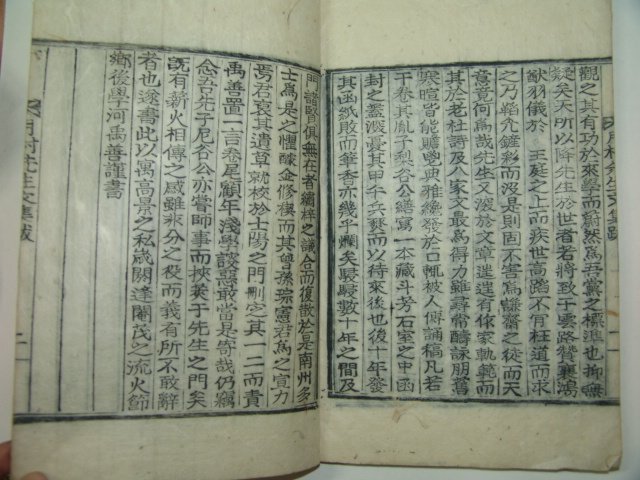 觀之其有功於來學而蔚然爲吾黨之標準也抑無
疑矣天所以降先生於世者若將致于雲路贊襄鴻
猷羽儀於 王庭之上而疾世高蹈不肯枉道而求
之乃韜光鏟彩而沒是則固不害爲謙齋之徒而天
意竟何爲哉先生又深於文章逹逹有作家軌範而
其於老杜詩及八家文最爲得力雖尋常酬詠朋舊
寒暄皆能贍典雅纔發於口輒被人傳誦稿凡若
干卷其胤子梨谷公繕寫一本藏斗芳石室之中函
封之蓋滾憂其甲午兵燹而以待來後也後十年發
其函紙敗而葉香亦幾乎爛矣駸駸數十年之間及
門諸賢俱無在者繡梓之議合而復散於是南州多
士爲是之懼醵金修禊而其曾孫琮憲君爲之宣力
焉君裒其遺草就校於士陽之門刪定其一二而責
禹善置一言卷尾顧年淺學諛惡敢當是寄哉仍竊
念吾先子尼谷公亦嘗師事而挾莢于先生之門矣
旣有薪火相傳之感雖來分之役而義有所不敢辭
者也遂書此以寓高景之私歲閼逢閹茂之流火節
鄕後學河禹善謹書
月村先生文集跋